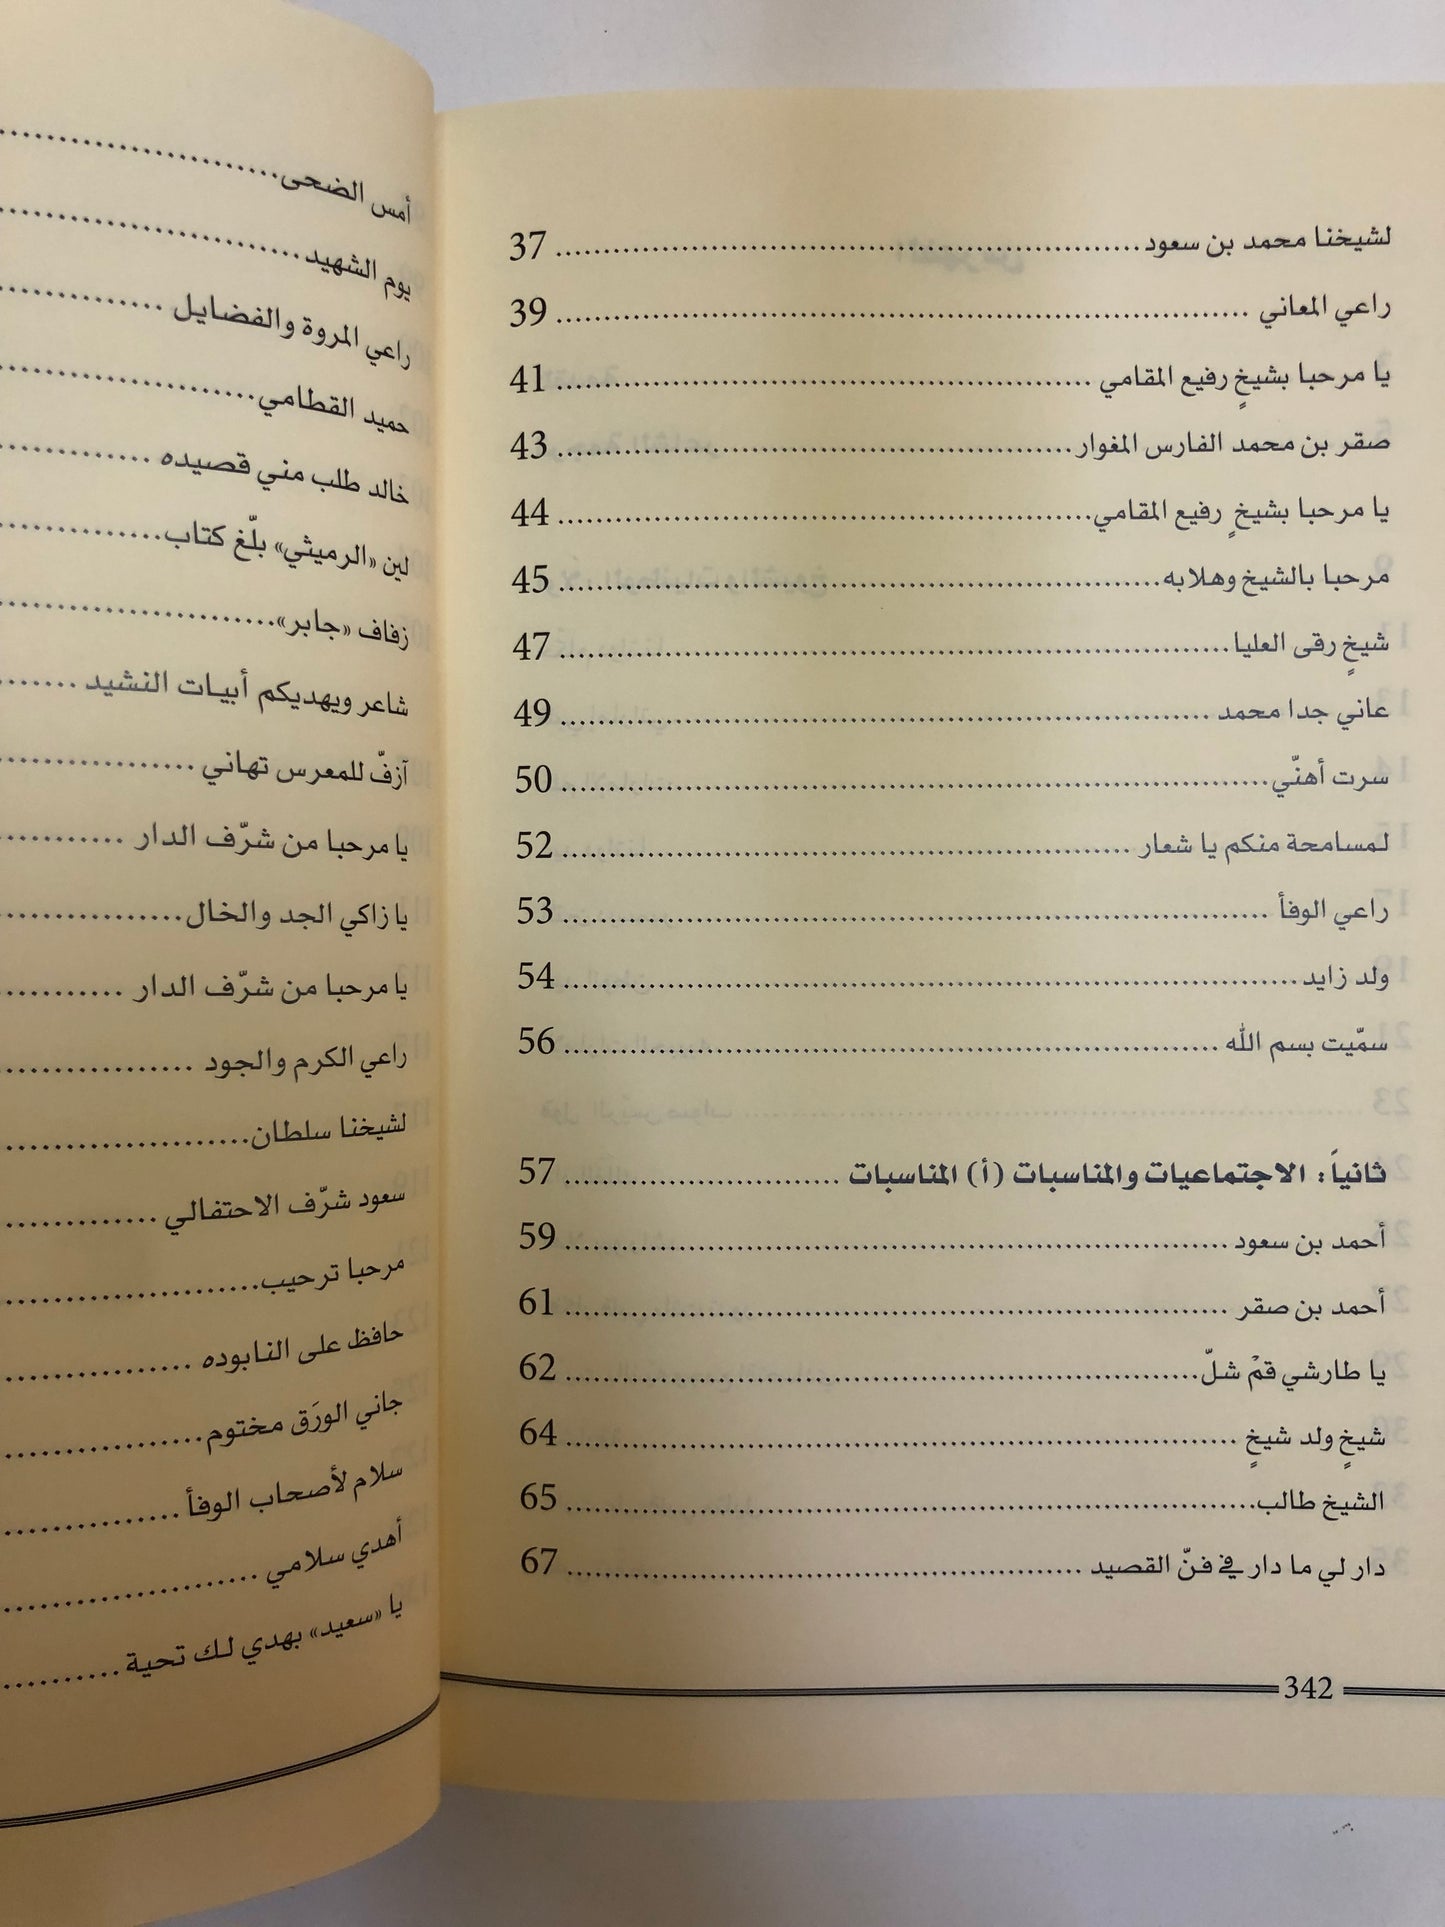 لشيخنا محمد بن سعود ........ 37
راعي المعاني ........ 39
يا مرحبا بشيخٍ رفيع المقامي ........ 41
صقر بن محمد الفارس المغوار ........ 43
يا مرحبا بشيخٍ رفيع المقامي ........ 44
مرحبا بالشيخ وهلابه ........ 45
شيخٍ رقى العليا ........ 47
عاني جدا محمد ........ 49
سرت أهنّي ........ 50
لمسامحة منكم يا شعار ........ 52
راعي الوفأ ........ 53
ولد زايد ........ 54
سمّيت بسم الله ........ 56
ثانياً: الاجتماعيات والمناسبات (أ) المناسبات ........ 57
أحمد بن سعود ........ 59
أحمد بن صقر ........ 61
يا طارشي قمْ شلّ ........ 62
شيخٍ ولد شيخٍ ........ 64
الشيخ طالب ........ 65
دار لي ما دار في فنّ القصيد ........ 67
342
أمس الضحى ........
يوم الشهيد ........
راعي المروة والفضايل ........
حميد القطامي ........
خالد طلب مني قصيده ........
لين «الرميثي» بلّغ كتاب ........
زفاف «جابر» ........
شاعر ويهديكم أبيات النشيد ........
آزفّ للمعرس تهاني ........
يا مرحبا من شرّف الدار ........
يا زاكي الجد والخال ........
يا مرحبا من شرّف الدار ........
راعي الكرم والجود ........
لشيخنا سلطان ........
سعود شرّف الاحتفالي ........
مرحبا ترحيب ........
حافظ على النابوده ........
جاني الورَق مختوم ........
سلام لأصحاب الوفأ ........
أهدي سلامي ........
يا «سعيد» بهدي لك تحية ........